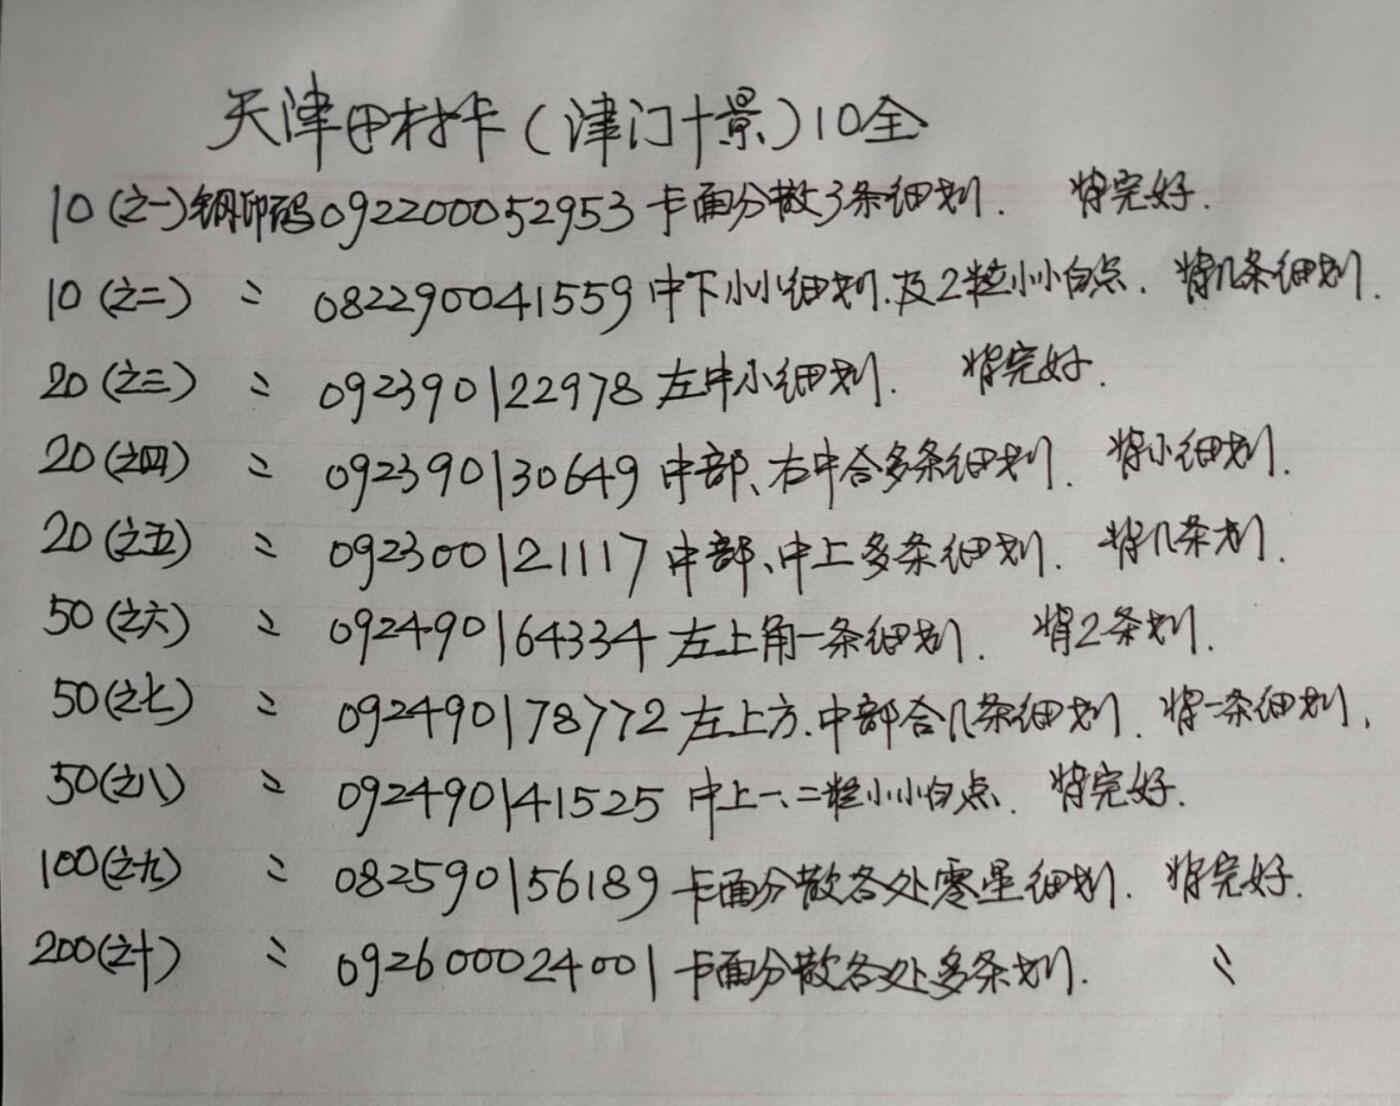 天津田村卡(津门十景)10全
10(之一)钢印码092200052953卡面分散3条细划. 背完好.
10(之二) 〃 082290041559中下小小细划.及2粒小小白点. 背几条细划.
20(之三) 〃 092390122978左中小细划. 背完好.
20(之四) 〃 092390130649中部、右中合多条细划. 背小细划.
20(之五) 〃 092300121117中部、中上多条细划. 背几条划.
50(之六) 〃 092490164334左上角一条细划. 背2条划.
50(之七) 〃 092490178772左上方.中部合几条细划. 背一条细划.
50(之八) 〃 092490141525中上一、二粒小小白点. 背完好.
100(之九) 〃 082590156189卡面分散各处零星细划. 背完好.
200(之十) 〃 092600024001卡面分散各处多条划. 〃